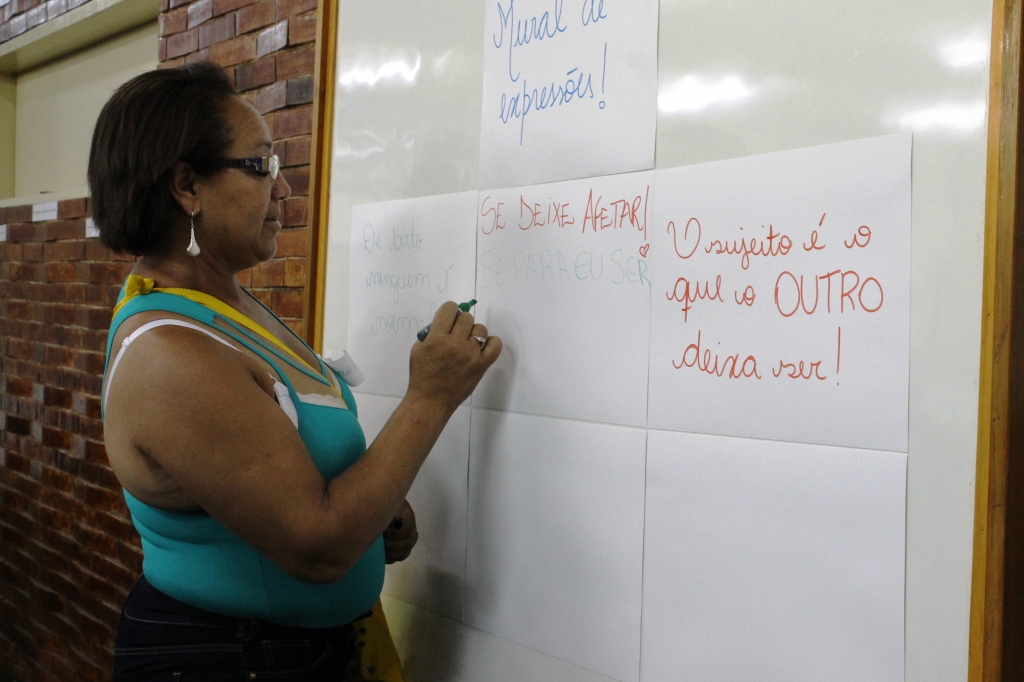 Mural de
expressões!
De perto
ninguém é
normal
SE DEIXE AFETAR!
SE PARA EU SER
O sujeito é o
que o OUTRO
deixa ser!